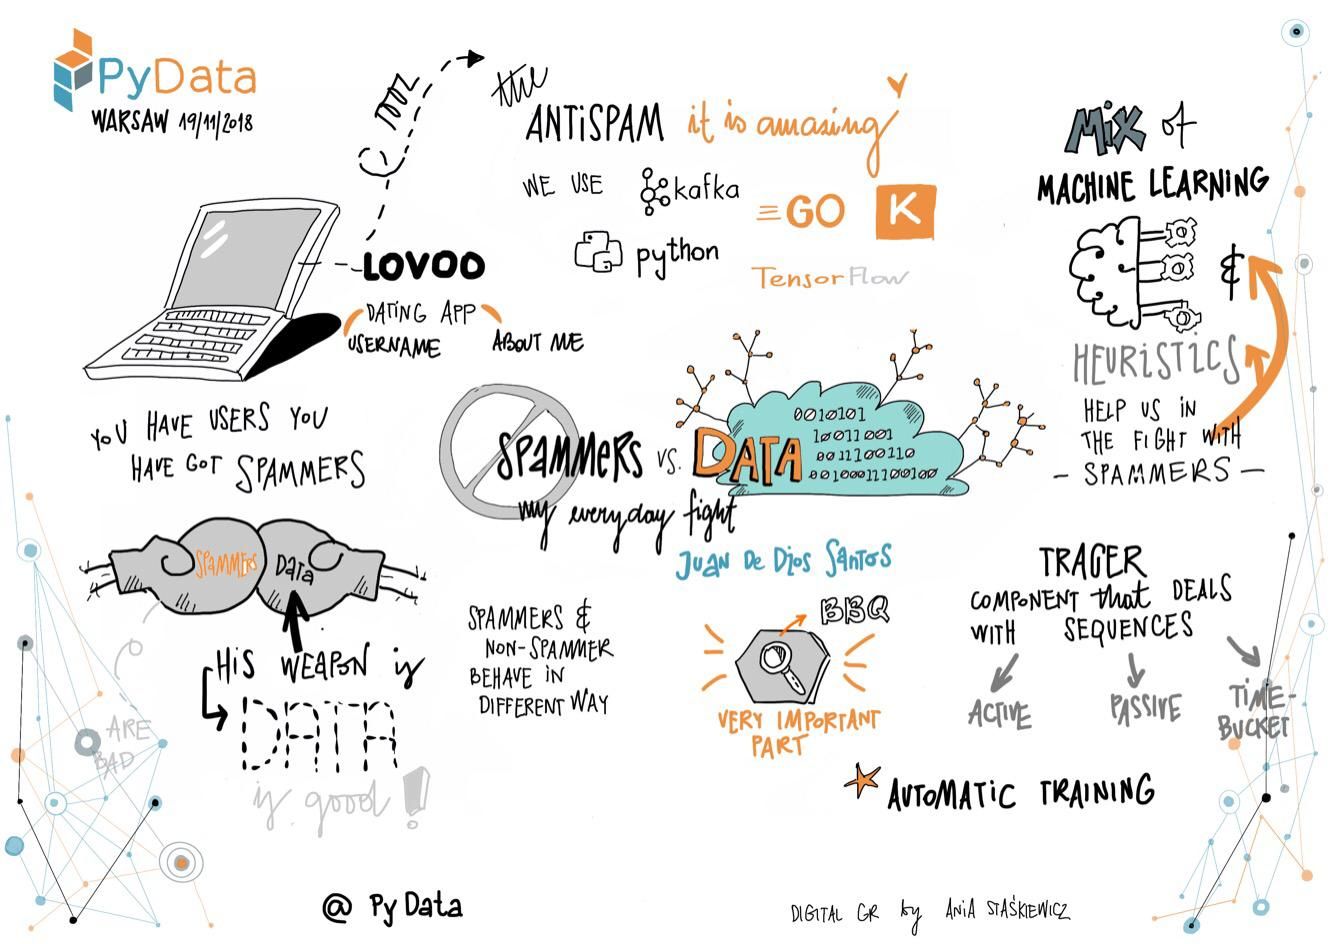 PyData
WARSAW 19/11/2018
the
ANTiSPAM it is amazing
WE USE kafka
GO K
python
TensorFlow
LOVOO
DATiNG APP
USERNAME
ABOUT ME
YOU HAVE USERS YOU
HAVE GOT SPAMMERS
Mix of
MACHINE LEARNING
&
HEURiSTiCS
HELP US iN
THE FIGHT WITH
- SPAMMERS -
SPAMMERS vs. DATA
my everyday fight
0010101
10011001
0011100110
00100011100100
Juan De Dios Santos
SPAMMERS
DATA
HiS WEAPON is
DATA
is good!
ARE
BAD
SPAMMERS &
NON-SPAMMER
BEHAVE iN
DIFFERENT WAY
BBQ
VERY IMPORTANT
PART
TRACER
COMPONENT that DEALS
WITH SEQUENCES
ACTIVE
PASSIVE
TiME-
BUCKET
AUTOMATiC TRAINING
@ PyData
DIGITAL GR by ANiA STAŚKIEWICZ